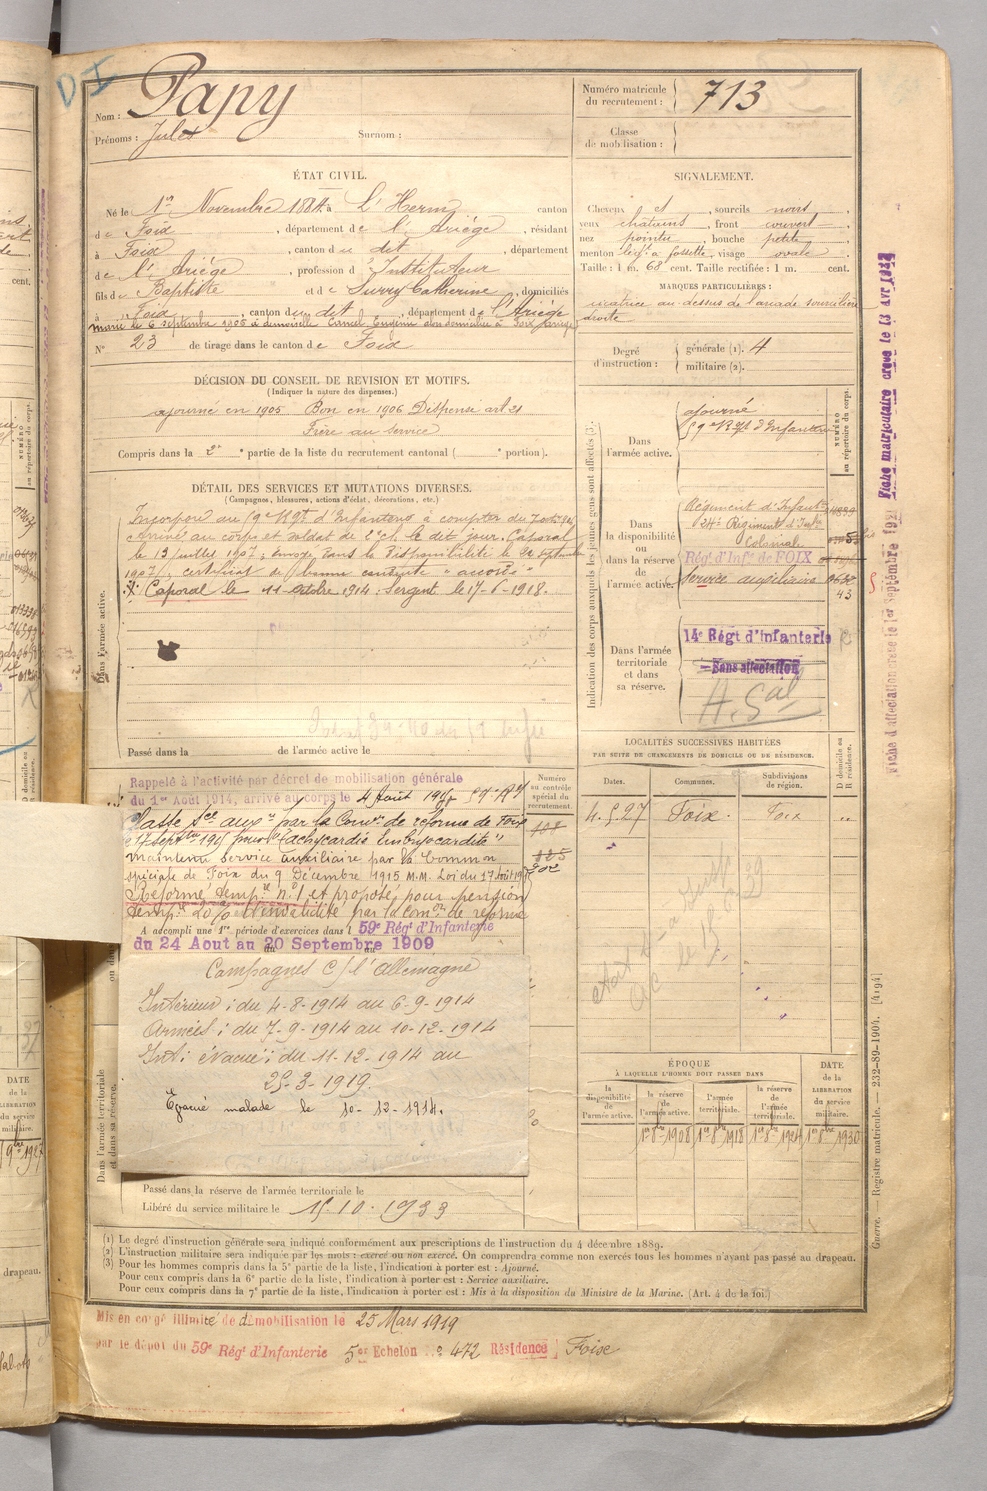 Nom : Papy
Prénoms : Jules Surnom :
Numéro matricule du recrutement : 713
Classe de mobilisation :
ÉTAT CIVIL.
Né le 1er Novembre 1884 à L'Herm canton
de Foix, département de l'Ariège, résidant
à Foix, canton du dit, département
de l'Ariège, profession d'Instituteur
fils de Baptiste et de Surry Catherine, domiciliés
à Foix, canton du dit, département de l'Ariège
marié le 6 septembre 1905 à demoiselle
N° 23 de tirage dans le canton de Foix
SIGNALEMENT.
Cheveux et, sourcils noirs,
yeux chatains, front couvert
nez pointu, bouche petite
menton à fossette, visage ovale
Taille : 1 m. 68 cent. Taille rectifiée : 1 m. cent.
MARQUES PARTICULIÈRES :
cicatrice au-dessus de l'arcade sourcilière
droite.
Degré d'instruction : générale (1). 4
militaire (2).
DÉCISION DU CONSEIL DE REVISION ET MOTIFS.
(Indiquer la nature des dispenses.)
ajourné en 1905 Bon en 1906 Dispensé art 21
Frère au service
Compris dans la 2e partie de la liste du recrutement cantonal ( e portion).
DÉTAIL DES SERVICES ET MUTATIONS DIVERSES.
(Campagnes, blessures, actions d'éclat, décorations, etc.)
Incorporé au 59e Régt d'Infanterie à compter du
Arrivé au corps et soldat de 2e cl. le dit jour. Caporal
le 13 juillet 1907; envoyé dans la disponibilité le
1907; certificat de bonne conduite "accordé"
Caporal le 11 octobre 1914. Sergent le 17-6-1918.
Dans l'armée active.
Passé dans la de l'armée active le
Indication des corps auxquels les jeunes gens sont affectés (3).
NUMÉRO au répertoire du corps.
Dans l'armée active.
ajourné
59e Régt d'Infanterie
Dans la disponibilité ou dans la réserve de l'armée active.
Régiment d'Infant
24e Régiment d'Infie
Coloniale
Régt d'Infie de FOIX
Service auxiliaire
43
Dans l'armée territoriale et dans sa réserve.
14e Régt d'Infanterie
Sans affectation
LOCALITÉS SUCCESSIVES HABITÉES
PAR SUITE DE CHANGEMENTS DE DOMICILE OU DE RÉSIDENCE.
Dates. Communes. Subdivisions de région. D domicile ou R résidence.
4.5.27 Foix. Foix "
Numéro au contrôle spécial du recrutement.
Rappelé à l'activité par décret de mobilisation générale
du 1er Août 1914, arrivé au corps le 4 Août 1914 59e RI
Classé Sce auxre par la Comon de réforme de Foix
17 septbre 1915 pour "tachycardie
maintenu service auxiliaire par la Common
spéciale de Foix du 9 Décembre 1915 M.M. Loi du 17 août 1915
Réformé tempre n°1 et proposé pour pension
tempre 20% d'invalidité par la comon de réforme
A accompli une 1re période d'exercices dans l 59e Régt d'Infanterie
du 24 Aout au 20 Septembre 1909
Campagnes C/ l'Allemagne
Intérieur : du 4-8-1914 au 6-9-1914
Armées : du 7-9-1914 au 10-12-1914
Int: évacué : du 11-12-1914 au
25-3-1919.
Évacué malade le 10-12-1914.
Dans l'armée territoriale et dans sa réserve.
Passé dans la réserve de l'armée territoriale le
Libéré du service militaire le 15.10.1933
ÉPOQUE
À LAQUELLE L'HOMME DOIT PASSER DANS
la disponibilité de l'armée active. la réserve de l'armée active. l'armée territoriale. la réserve de l'armée territoriale. DATE de la LIBÉRATION du service militaire.
1er 8bre 1908 1er 8bre 1918 1er 8bre 1924 1er 8bre 1930
(1) Le degré d'instruction générale sera indiqué conformément aux prescriptions de l'instruction du 4 décembre 1889.
(2) L'instruction militaire sera indiquée par les mots : exercé ou non exercé. On comprendra comme non exercés tous les hommes n'ayant pas passé au drapeau.
(3) Pour les hommes compris dans la 5e partie de la liste, l'indication à porter est : Ajourné.
Pour ceux compris dans la 6e partie de la liste, l'indication à porter est : Service auxiliaire.
Pour ceux compris dans la 7e partie de la liste, l'indication à porter est : Mis à la disposition du Ministre de la Marine. (Art. 4 de la loi.)
Mis en congé illimité de démobilisation le 25 Mars 1919
par le dépôt du 59e Régt d'Infanterie 5er Echelon n° 472 Résidence Foix
Guerre. — Registre matricule. — 232-89-1904. [4194]
Fiche d'affectation créée le 1er Septembre 1921 Fiche matriculaire créée le 13 Avr